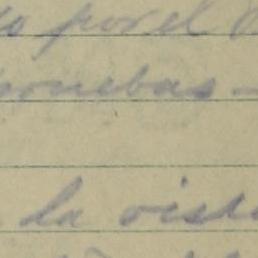 por el
pruebas -
la vist